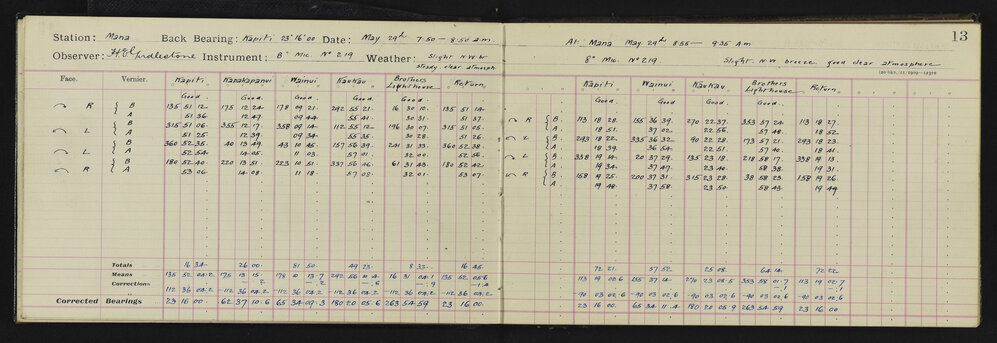 Station: Mana Back Bearing: Kapiti 23° 16' 00 Date: May 29th 7.50 – 8.50 a.m.
Observer: H.E. Girdlestone Instrument: 8" Mic. No 219 Weather: Slight N.W. br
steady clear atmosph
Face. Vernier. Kapiti Kapakapanui Wainui Kaukau Brothers Lighthouse Return
Good. Good. Good. Good. Good.
R B 135 51 12 175 12 24 178 09 21 292 55 21 16 30 12 135 51 14
A 51 36 12 47 09 44 55 41 30 31 51 37
L B 315 51 06 355 12 17 358 09 14 112 55 12 196 30 07 315 51 05
A 51 25 12 39 09 34 55 35 30 28 51 26
L B 360 52 35 40 13 49 43 10 45 157 56 39 241 31 33 360 52 38
A 52 54 14 05 11 03 57 01 32 00 52 56
R B 180 52 40 220 13 51 223 10 51 337 56 46 61 31 43 180 52 42
A 53 06 14 08 11 18 57 08 32 01 53 07
Totals 16 34 26 00 81 50 49 23 8 33 16 45
Means 135 52 04.2 175 13 15 178 0 13.7 292 56 10.4 16 31 04.1 135 52 05.6
Corrections .2 .2 .6 .9 1.4
112 36 04.2 112 36 04.2 112 36 04.2 112 36 04.2 112 36 04.2 112 36 04.2
Corrected Bearings 23 16 00 62 37 10.6 65 34 09.3 180 20 05.6 263 54 59 23 16 00
13
At Mana May 29th 8.55 – 9.35 Am
8" Mic. No 219. Slight N.W. breeze good clear atmosphere
Kapiti Wainui Kaukau Brothers Lighthouse Return
Good Good Good Good
R B 113 18 28 155 36 39 270 22 37 353 57 24 113 18 27
A 18 51 37 02 22 56 57 48 18 52
L B 293 18 22 335 36 32 90 22 28 173 57 21 293 18 23
A 18 39 36 54 22 51 57 40 18 41
L B 338 19 14 20 37 29 135 23 18 218 58 17 338 19 13
A 19 34 37 47 23 40 58 38 19 31
R B 158 19 25 200 37 31 315 23 28 38 58 23 158 19 26
A 19 48 37 58 23 50 58 43 19 49
72 21 57 52 25 08 64 14 72 22
113 19 02.6 155 37 14 270 23 08.5 353 58 01.7 113 19 02.7
.1 .1
90 03 02.6 90 03 02.6 90 03 02.6 90 03 02.6 90 03 02.6
23 16 00 65 34 11.4 180 20 05.9 263 54 59 23 16 00